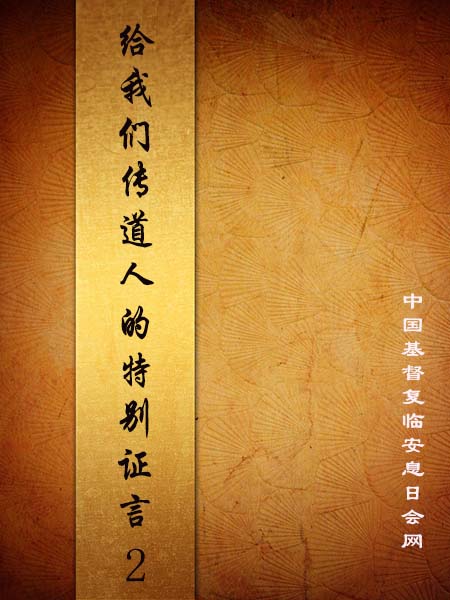 给我们传道人的特别证言2
中国基督复临安息日会网